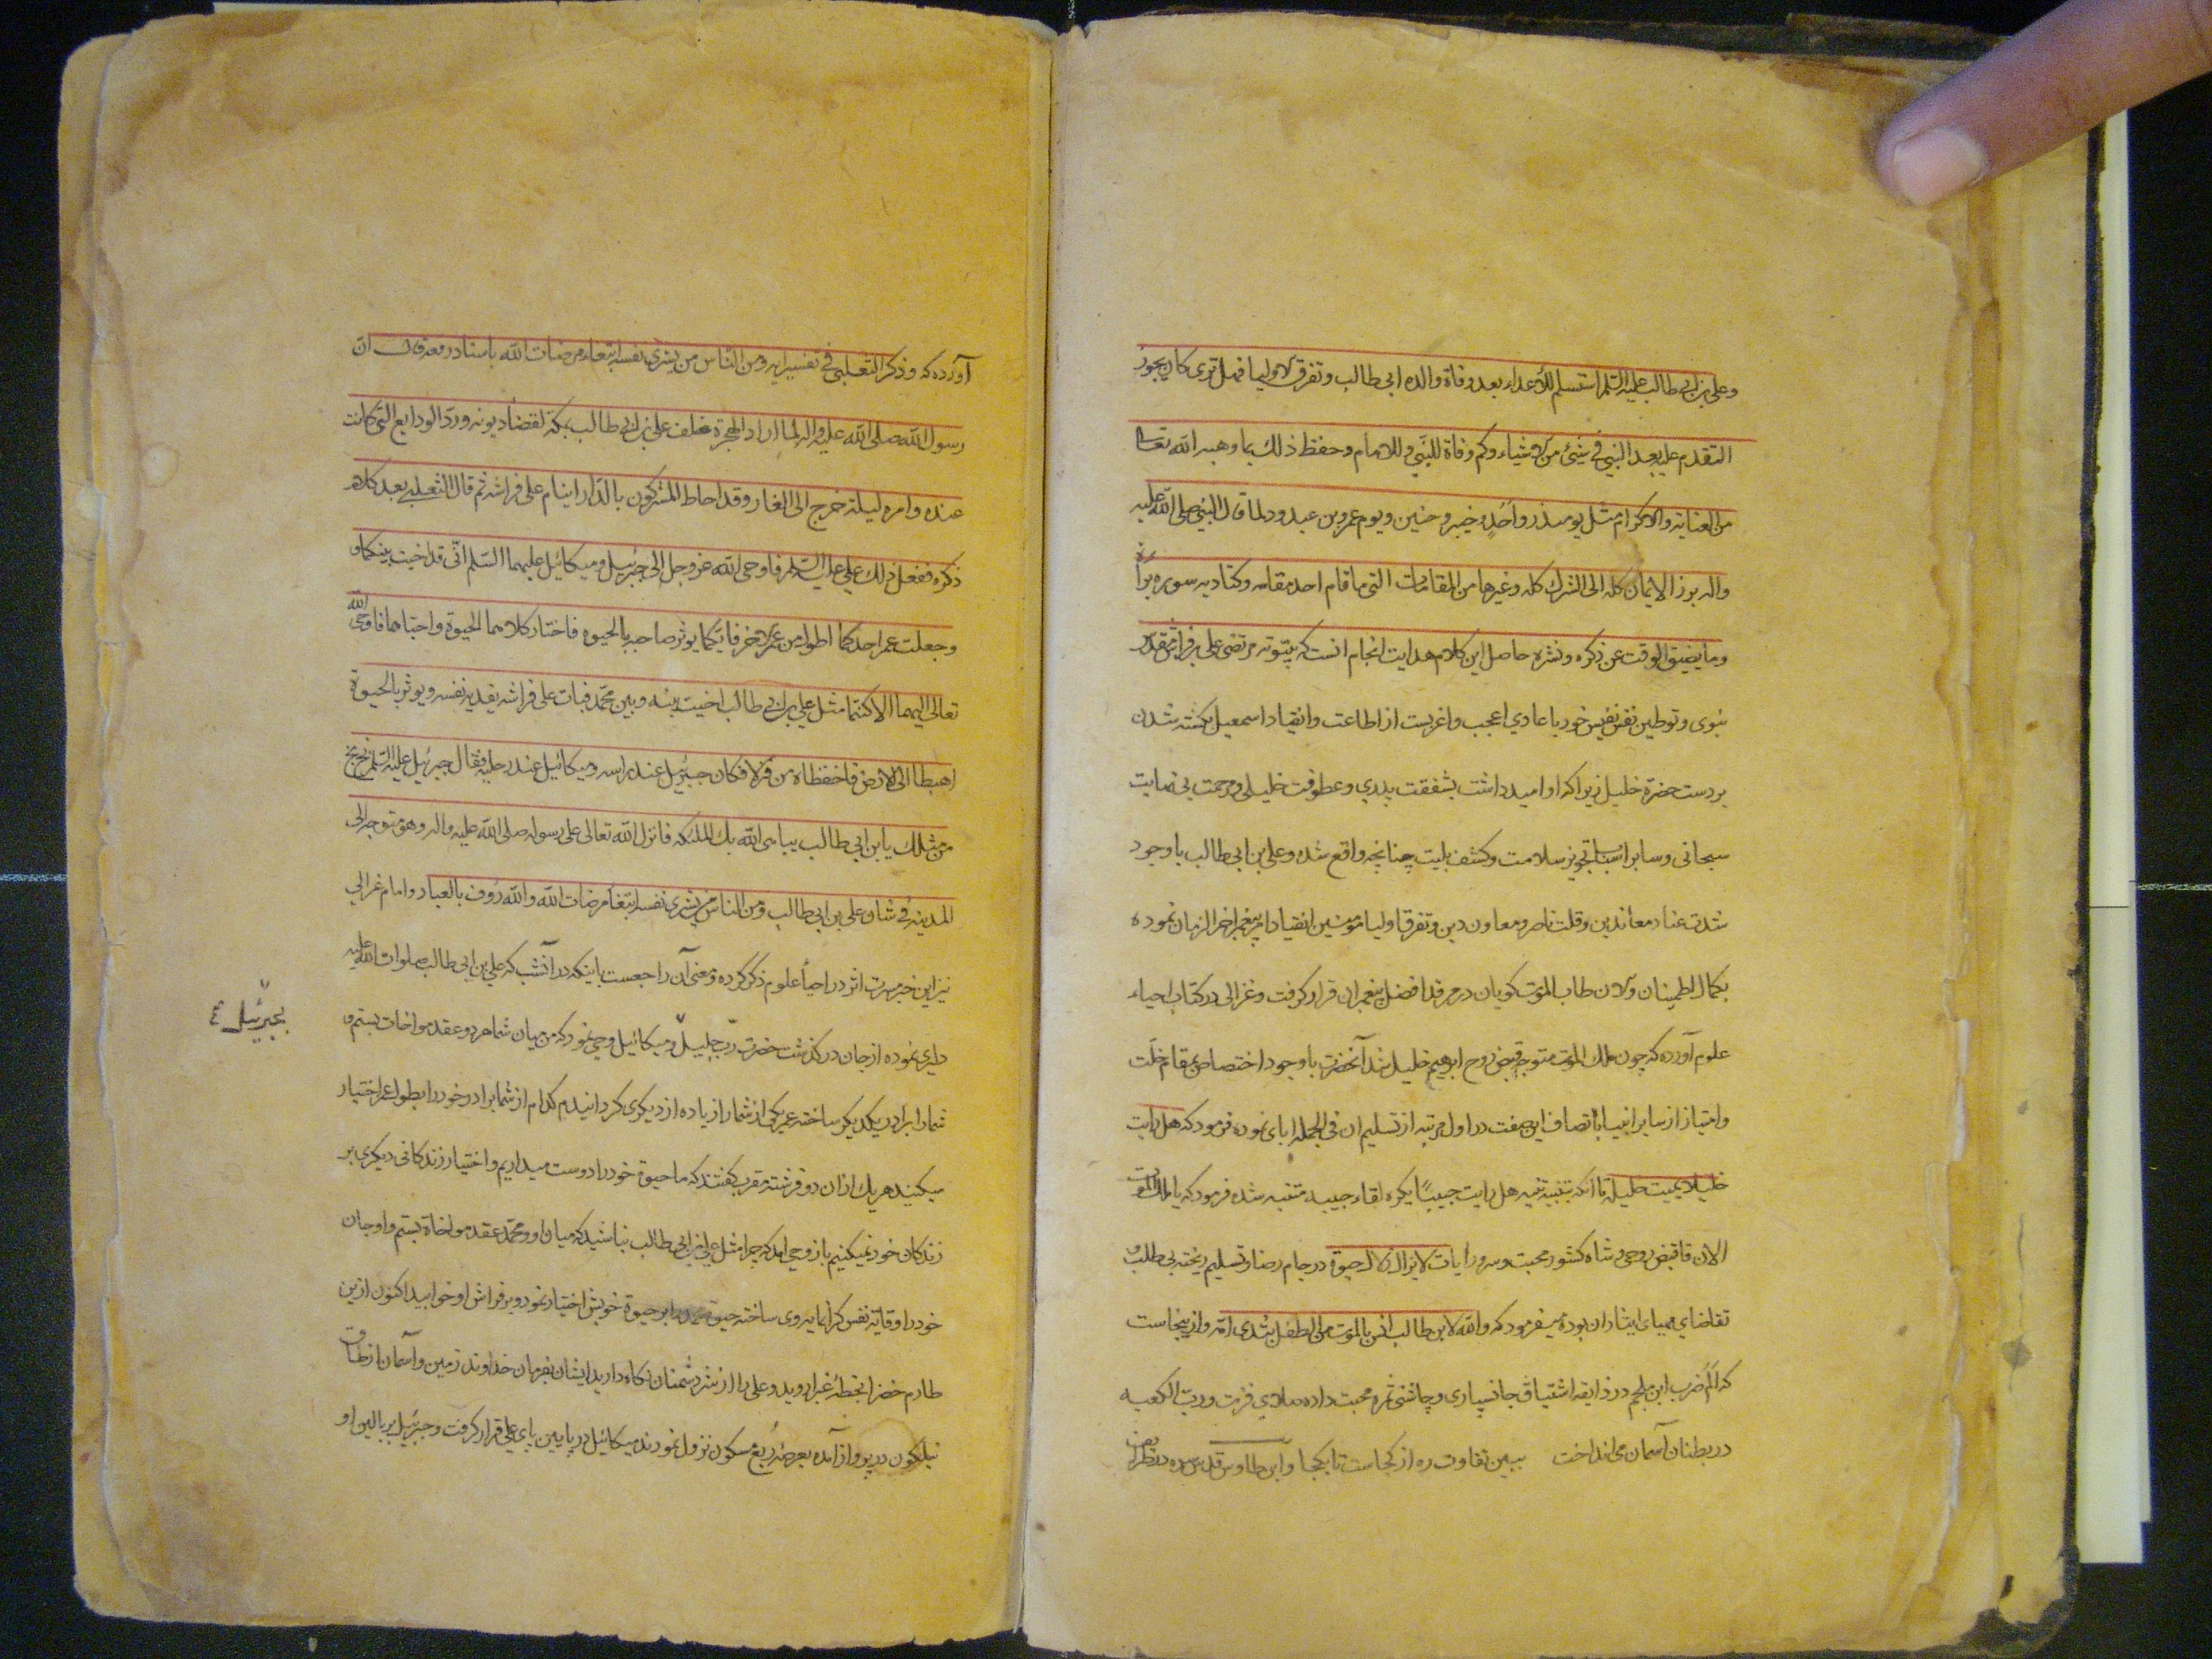 وعلی بن ابی طالب علیه السّلم استسلم للأعداء بعد وفاة والده ابی طالب وتفرق الاولیا فهل تری کان یجوز
التقدم علیه بعد النبی فی شیئ من الاشیاء وکم وقاة للنّبی وللامام وحفظ ذلك بما وهبه الله تعالی
من العنایة والاکرام مثل یوم بدر واُحُدٍ وخیبر وحنین ویوم عمرو بن عبدود لما قال النبی صلی الله علیه
واله برز الایمان کله الی الشرك کله وغیرها من المقامات التی ما قام احد مقامه وکتادیه سوره براة
وما یضیق الوقت عن ذکره ونشره حاصل این کلام هدایت انجام انست که بیتوته مرتضی علی بر فراش مقدّس
نبوی وتوطین نفس نفیس خود باعادی اعجب واغربست از اطاعت وانقیاد اسمعیل بکشته شدن
بر دست حضرة خلیل زیرا که او امید داشت بشفقت پدری وعطوفت خلیلی ومرحمت بی نهایت
سبحانی وسایر اسباب تجویز سلامت وکشف بلیت چنانچه واقع شد وعلی بن ابی طالب باوجود
شدت عناد معاندین وقلت ناصر ومعاون دین وتفرق اولیا مؤمنین انقیاد امر پیغمبر اخر الزمان نموده
بکمال اطمینان والان طاب الموت کویان در مرقد افضل پیغمبران قرار کرفت وغزالی در کتاب احیاء
علوم آورده که چون ملك الموت متوجه قبض روح ابرهیم خلیل شد آنحضرت باوجود اختصاص بمقام خلّت
وامتیاز از سایر انبیا باتصاف این صفت در اول مرتبه از تسلیم ان فی الجمله ابای نموده فرمود که هل رایت
خلیلا یمیت خلیله تا انکه بتنبیه تنبیه هل رایت حبیبًا یکره لقاء حبیبه متنبه شده فرمود که یا ملك الموت
الان فاقبض روحی وشاه کشور محبت وسرور ایات لایزال زلال حیوة در جام رضا وتسلیم ریخته بی طلب و
تقاضای مهیای ایثار ان بوده میفرمود که والله لابن طالب انس بالموت من الطفل بثدی امّه وازینجاست
که المُ ضرب ابن ملجم در ذایقه اشتیاق جانسپاری وچاشنی ثمره محبت داده صلای فزت ورب الکعبه
در بطنان آسمان می انداخت ببین تفاوت ره از کجاست تا بکجا وابن طاوس قدس سره در طرایف
آورده که وذکر الثعلبی فی تفسیر ایه ومن الناس من یشری نفسه ابتغاء مرضات الله باسناد رفعه قال انّ
رسول الله صلی الله علیه واله لما اراد الهجرة خلف علی بن ابی طالب بمکه لقضاء دیونه وردّ الودایع التی کانت
عنده وامره لیلة خرج الی الغار وقد احاط المشرکون بالدّار ان ینام علی فراشه ثم قال الثعلبی بعد کلام
ذکره ففعل ذلك علی علیه السّلم فاوحی الله عز وجل الی جبرئیل ومیکائیل علیهما السّلم انّی قد اخیت بینکما و
وجعلت عمر احدکما اطول من عمر الاخر فایّکما یوثر صاحبه بالحیوه فاختار کلاهما الحیوة واحبّاها فاوحی الله
تعالی الیهما الا کنتما مثل علی بن ابی طالب اخیت بینه وبین محمّد فبات علی فراشه یفدیه نفسه ویوثره بالحیوة
اهبطا الی الارض فاحفظاه من عدوّه فکان جبرئیل عند راسه ومیکائیل عند رجلیه فقال جبرئیل علیه السّلم بخ بخ
من مثلك یابن ابی طالب یباهی الله بك الملئکه فانزل الله تعالی علی رسوله صلی الله علیه واله وهو متوجه الی
المدینه فی شان علی بن ابی طالب ومن الناس من یشری نفسه ابتغاء مرضات الله والله رؤف بالعباد وامام غزالی
نیز این خبر مسرت اثر در احیاً علوم ذکر کرده ومعنی آن راجعست باینکه در آنشب که علی بن ابی طالب صلوات الله علیه
دلیری نموده از جان در کذشت حضرت ربّ جلیل ومیکائیل وحی نمود که من میان شما هر دو عقد مواخات بستم و
بجبرئیل ع
شما را برادر یکدیکر ساخته عمر یکی از شما را زیاده از دیکری کردانیدم کدام از شما برادر خود را بطول عمر اختیار
میکنید هر یك ازان دو فرشته مقرب کفتند که ما حیوة خود را دوست میداریم واختیار زندکانی دیکری بر
زندکان خود نمیکنیم باز وحی امد که چرا مثل علی بن ابی طالب نباشید که میان او ومحمّد عقد مواخاة بستم واو جان
خود را وقایه نفس کرانمایه وی ساخته حیوة محمد را بر حیوة خویش اختیار نمود وبر فراش او خوابید اکنون ازین
طارم خضرا بخطهٔ غبرا روید وعلی را از شر دشمنان نکاه دارید ایشان بفرمان خداوند زمین وآسمان از طاق
نیلکون در پرواز آمده بعرصهٔ ربع مسکون نزول نمودند میکائیل در پایین پای علی قرار کرفت وجبرئیل بر بالین او